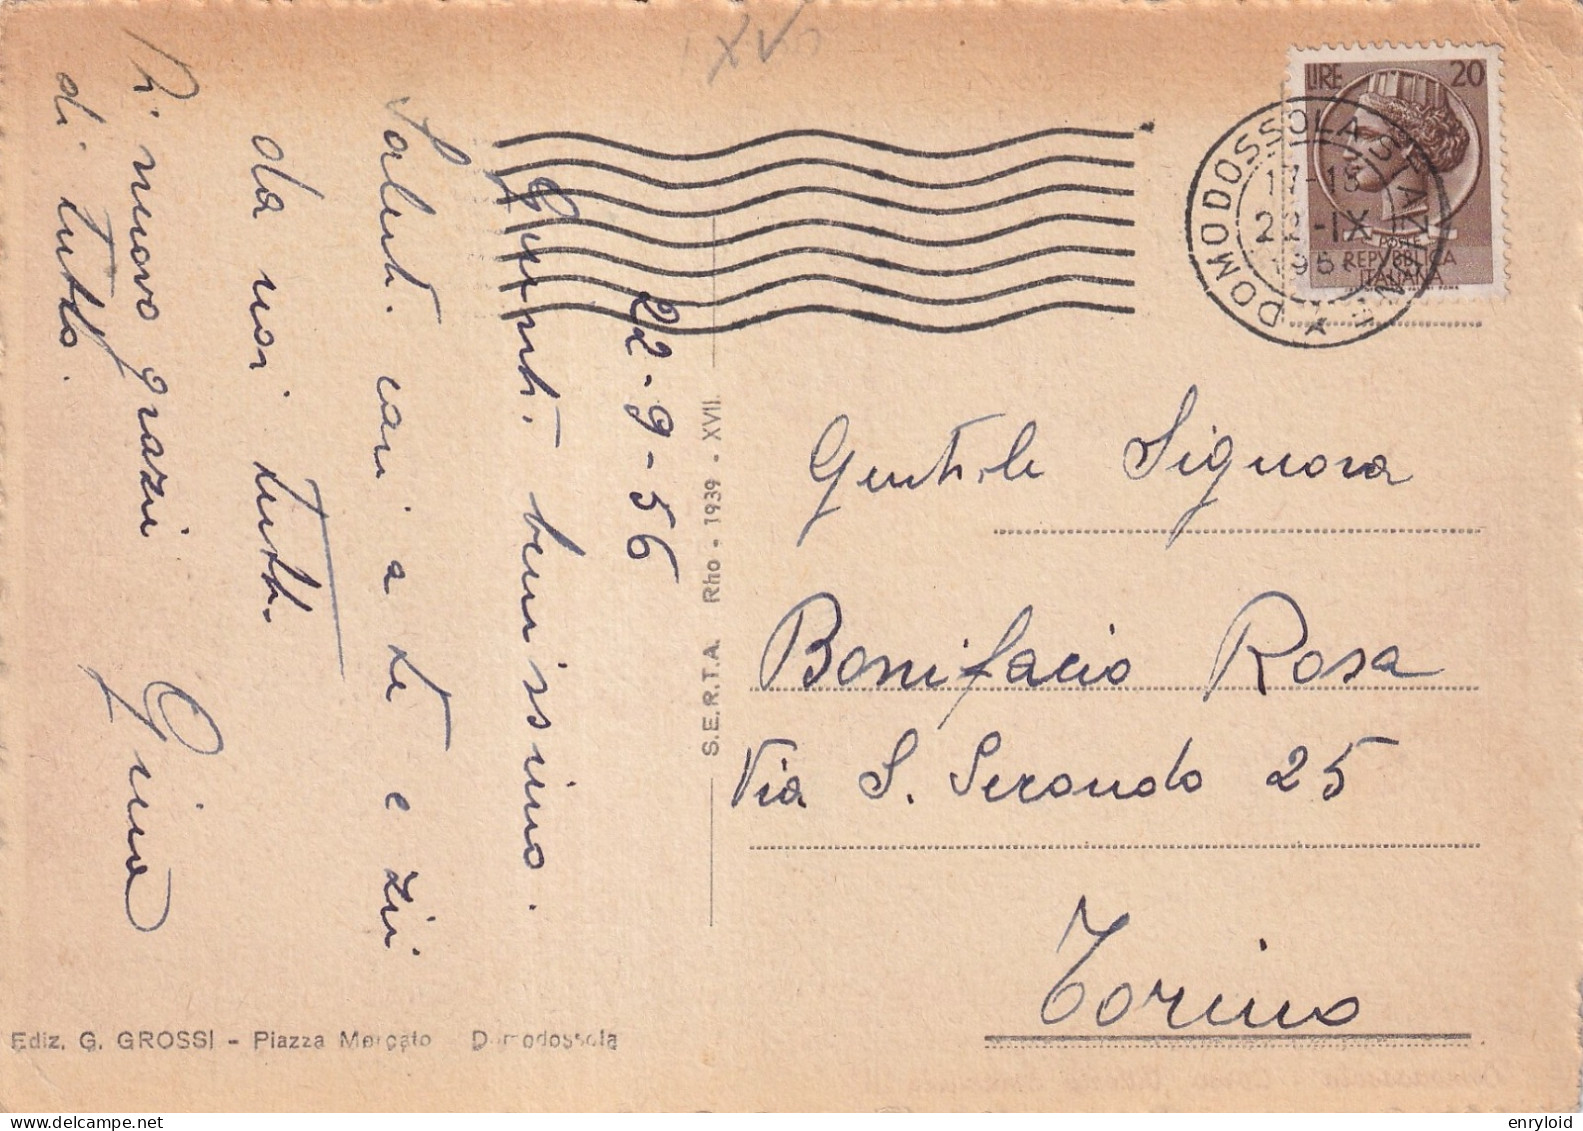 22-9-56
Giunti benissimo.
Saluti cari a te e zii
da noi tutti.
Gina
Di nuovo grazie
di tutto.
S.E.R.T.A. Rho - 1939 - XVII.
Ediz. G. GROSSI - Piazza Mercato Domodossola
LIRE 20
POSTE
REPVBBLICA
ITALIANA
DOMODOSSOLA STAZIONE
17-18
22-IX
195
Gentile Signora
Bonifacio Rosa
Via S. Secondo 25
Torino
XV
enryloid